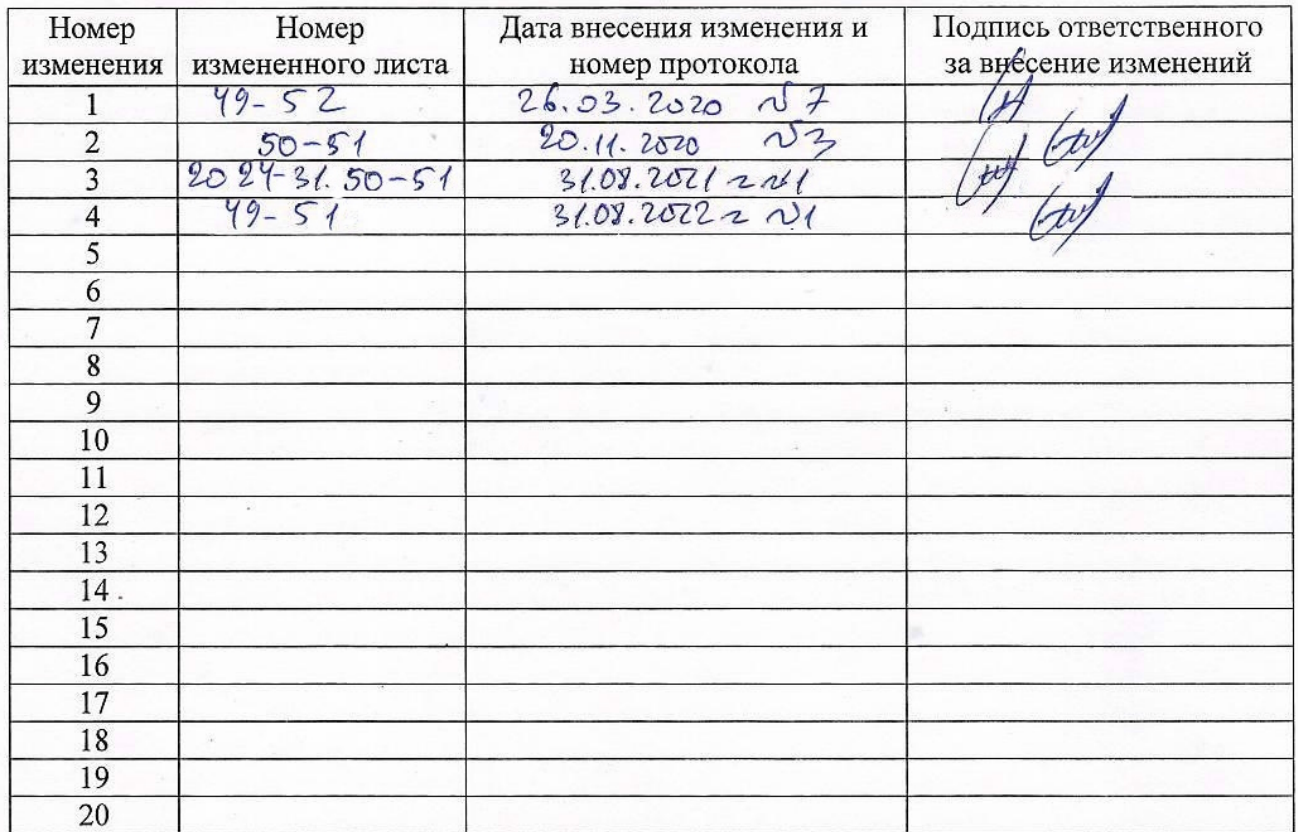 Номер изменения Номер измененного листа Дата внесения изменения и номер протокола Подпись ответственного за внесение изменений
1 49-52 26.03.2020 №7
2 50-51 20.11.2020 №3
3 20 24-31. 50-51 31.08.2021 г №1
4 49-51 31.08.2022 г №1
5
6
7
8
9
10
11
12
13
14
15
16
17
18
19
20